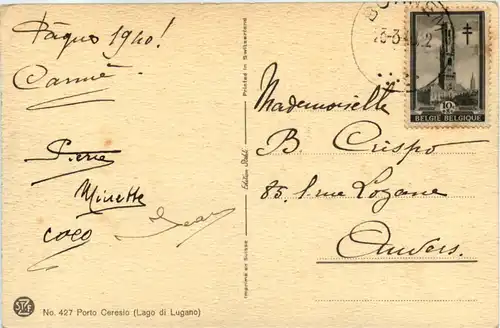 Pâques 1940!
Carmé
Pierre
Minette
coco
Jean
No. 427 Porto Ceresio (Lago di Lugano)
Printed in Switzerland
Edition Stehli
Imprimé en Suisse
BELGIË BELGIQUE
Mademoiselle
B. Crispo
85, rue Lozane
Anvers.